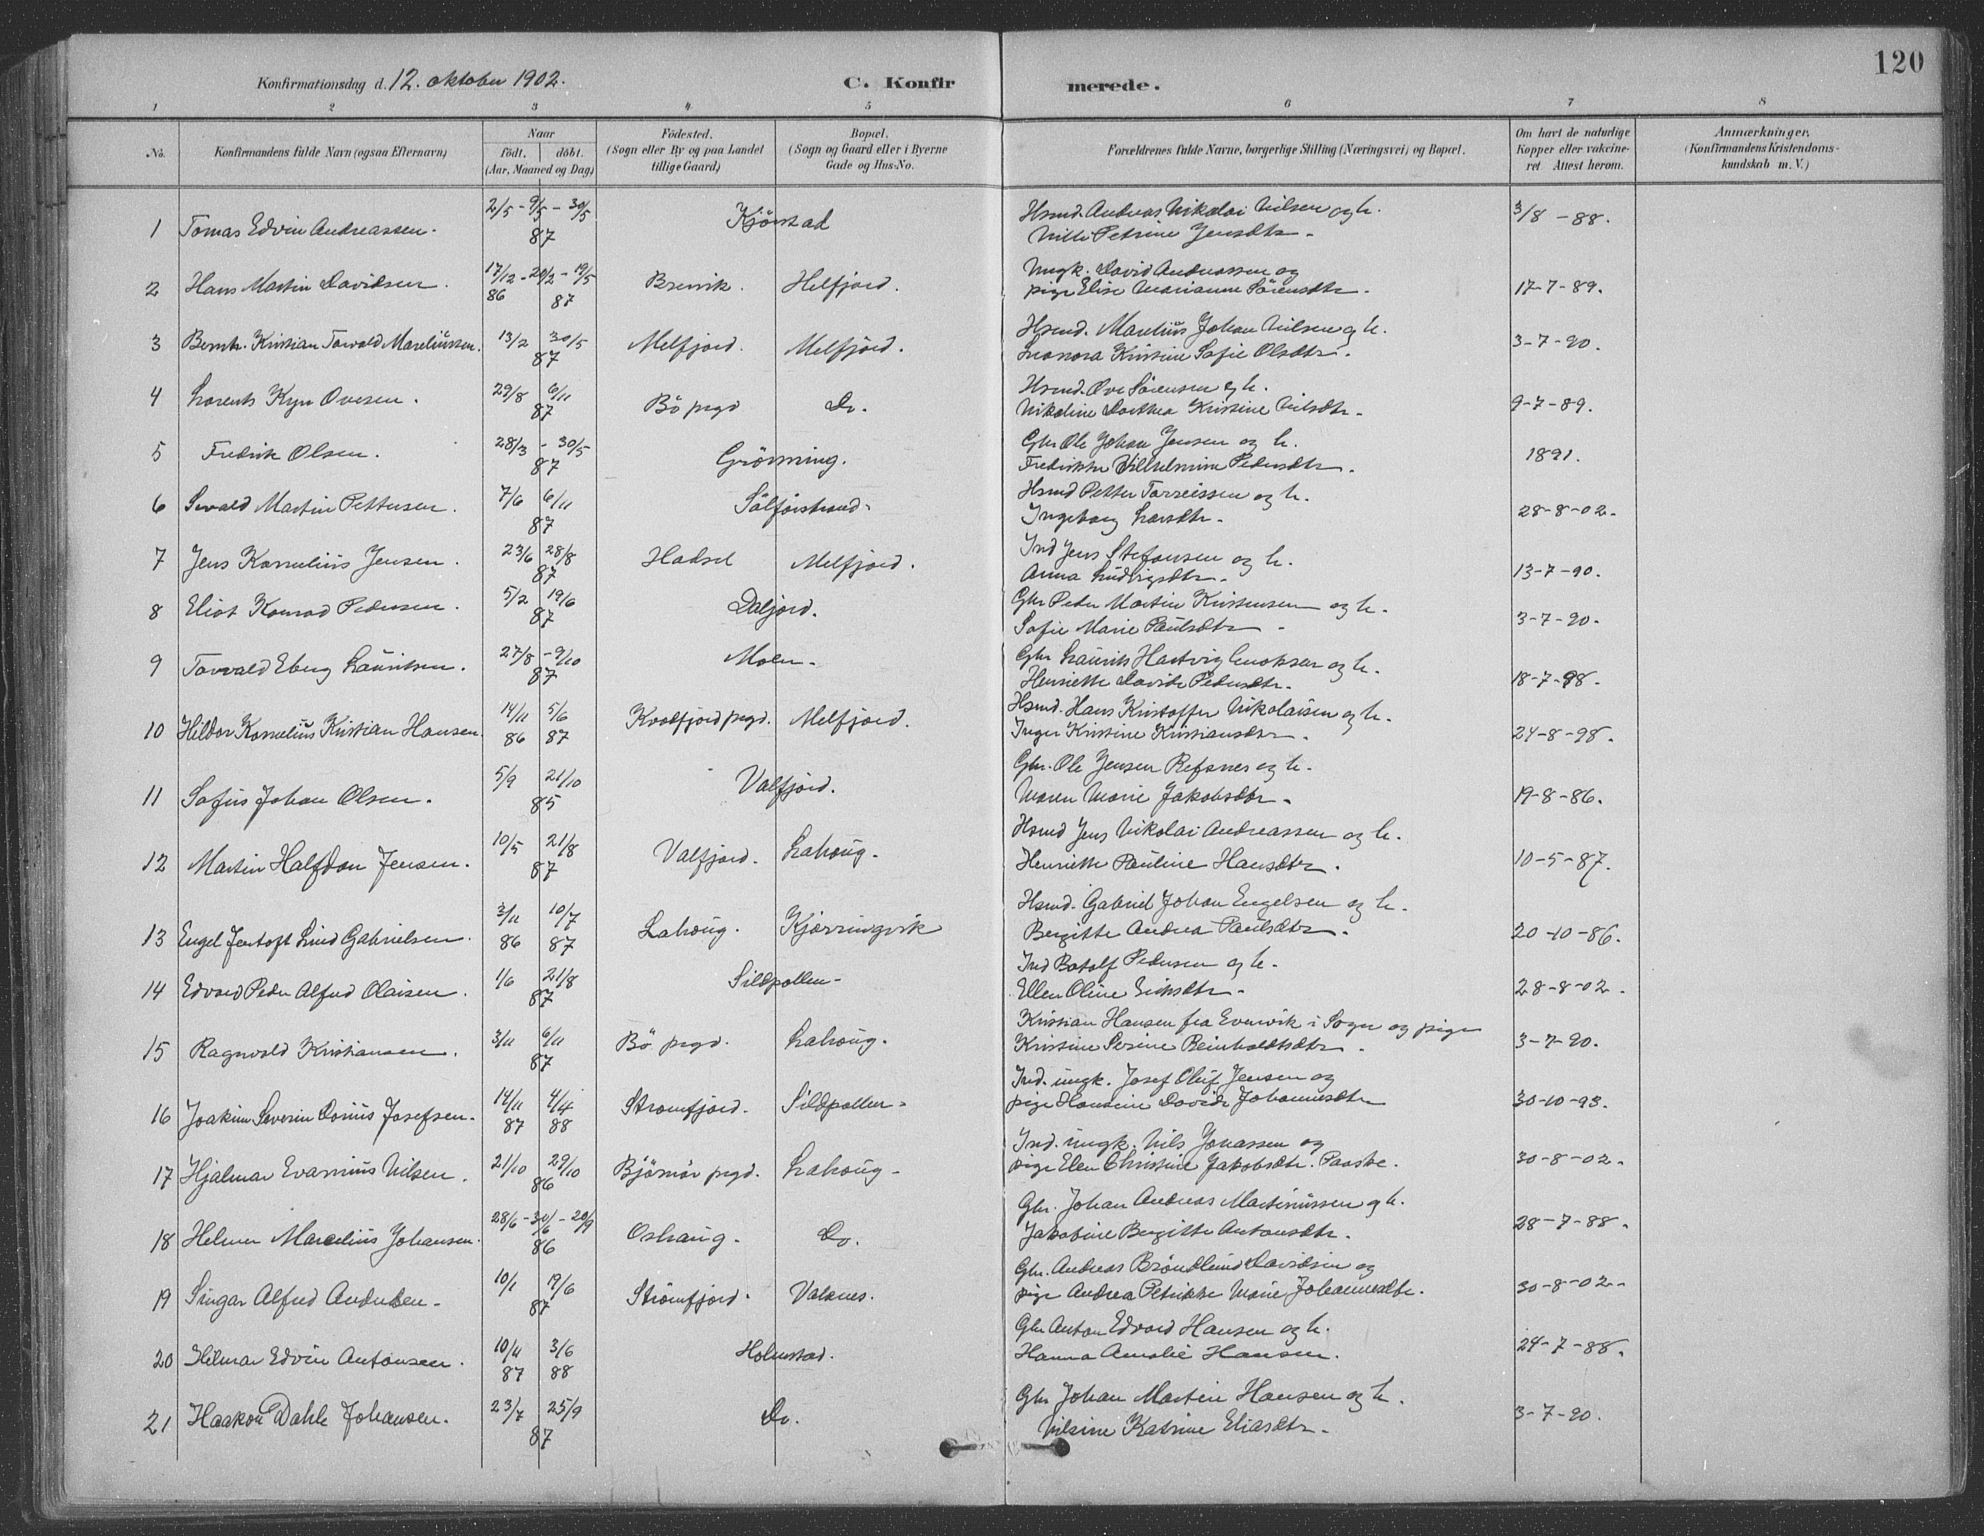 120
Konfirmationsdag d. 12. oktober 1902.
C. Konfirmerede.
1 2 3 4 5 6 7 8
No. Konfirmandens fulde Navn (ogsaa Efternavn) Naar födt. döbt. (Aar, Maaned og Dag) Födested. (Sogn eller By og paa Landet tillige Gaard) Bopæl. (Sogn og Gaard eller i Byerne Gade og Hus-No. Forældrenes fulde Navne, borgerlige Stilling (Næringsvei) og Bopæl. Om havt de naturlige Kopper eller vakcineret Attest herom. Anmærkninger. (Konfirmandens Kristendomskundskab m. V.)
1 Tomas Edvin Andreassen. 2/5 - 9/5 - 30/5 87 Kjörstad Hsmd. Andreas Nikolai Nilsen og h. Petrine Jensdtr. 3/8 - 88.
2 Hans Martin Davidsen. 17/12 86 - 20/2 - 19/5 87 Brenvik. Melfjord. Ungk. David Andreassen og pige Elise Marianne Sörensdtr. 17-7-89.
3 Bernh. Kristian Torvald Mareliussen. 13/2 30/5 87 Melfjord. Melfjord. Hsmd. Marelius Johan Nilsen og h. Leonora Kristine Sofie Olsdtr. 3-7-90.
4 Lorents Kyn Ovesen. 29/8 6/11 87 Bö prgd Do. Hsmd. Ove Sörensen og h. Nikoline Dorthea Kristine Nilsdtr. 9-7-89.
5 Fredrik Olsen. 28/3 - 30/5 87 Grönning. Gbr. Ole Johan Jensen og h. Fredrikke Vilhelmine Pedersdtr. 1891.
6 Sevald Martin Pettersen. 7/6 6/11 87 Hsmd Petter Torreissen og h. Ingeborg Larsdtr. 28-8-02.
7 Jens Kornelius Jensen. 23/6 28/8 87 Hadsel Melfjord. Ind Jens Stefansen og h. Anna Ludvigsdtr. 13-7-90.
8 Eliot Konrad Pedersen. 5/2 19/6 87 Daljord. Gbr Peder Martin Kristensen og h. Sofie Marie Paulsdtr. 3-7-90.
9 Torvald Eberg Lauritsen. 27/8 - 9/10 87 Molen. Gbr Laurits Hartvig Enoksen og h. Henriette Davida Pedersdtr. 18-7-98.
10 Hildor Kornelius Kristian Hansen. 14/11 86 5/6 87 Kvædfjord prgd. Melfjord. Hsmd. Hans Kristoffer Nikolaisen og h. Inger Kristine Kristiansdtr. 24-8-98.
11 Sofus Johan Olsen. 5/9 21/10 85 Valfjord. Gbr. Ole Jensen Refsnes og h. Maren Marie Jakobsdtr. 19-8-86.
12 Martin Halfdan Jensen. 10/5 21/8 87 Valfjord. Lahoug. Hsmd Jens Nikolai Andreassen og h. Henriette Pauline Hansdtr. 10-5-87.
13 Engel Jentoft Lind Gabrielsen. 3/11 86 10/7 87 Lahoug. Kjörringvik Hsmd. Gabriel Johan Engelsen og h. Bergitte Andrea Paulsdtr. 20-10-86.
14 Edvard Peder Alfred Olaisen. 1/6 21/8 87 Sildpollen. Ind Botolf Pedersen og h. Ellen Oline Eriksdtr. 28-8-02.
15 Ragnvald Kristiansen. 3/11 6/11 87 Bö prgd. Lahoug. Kristian Hansen fra Evenvik i Sogn og pige Kristine Serine Reinholdtsdtr. 3-7-90.
16 Joakim Severin Dorius Josefsen. 14/11 87 4/4 88 Strömfjord. Sildpollen. Ind. ungk. Josef Oluf Jensen og pige Hansine Davida Johannesdtr 30-10-93.
17 Hjalmar Evarnius Nilsen. 21/10 29/10 86 Björnör prgd. Lahoug. Ind. ungk. Nils Jonassen og pige Elen Christine Jakobsdtr. Paaske. 30-8-02.
18 Helmer Marcelius Johansen. 28/6 - 30/6 - 20/9 86 Oshaug. Do. Gbr. Johan Andreas Martinussen og h. Jakobine Bergitte Antonsdtr. 28-7-88.
19 Singar Alfred Andersen. 10/1 19/6 87 Strömfjord. Valsnes. Gbr. Andreas Bröndlund Davidsen og pige Andrea Petrikke Marie Johannesdtr. 30-8-02.
20 Hilmar Edvin Antonsen. 10/11 87 3/6 88 Holmstad. Gbr Anton Edvard Hansen og h. Hanna Amalie Hansen. 24-7-88.
21 Haakon Dahle Johansen. 23/7 25/9 87 Do. Gbr Johan Martin Hansen og h. Nilsine Katrine Eliasdtr. 3-7-90.